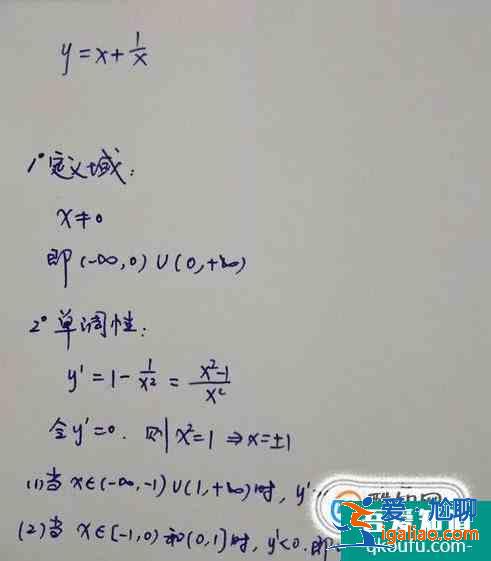 y=x+1/x
1°定义域:
x≠0
即(-∞,0)∪(0,+∞)
2°单调性:
y'=1-1/x²=x²-1/x²
令y'=0.则x²=1⇒x=±1
(1)当x∈(-∞,-1)∪(1,+∞)时,y'
(2)当x∈[-1,0)和(0,1]时,y'<0.即
爱尬聊
ingaliao.com
qkoufu.com